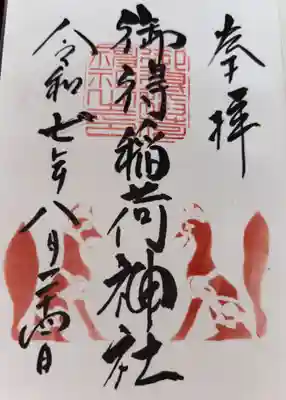 奉拝
御得稲荷神社
令和七年八月二十四日